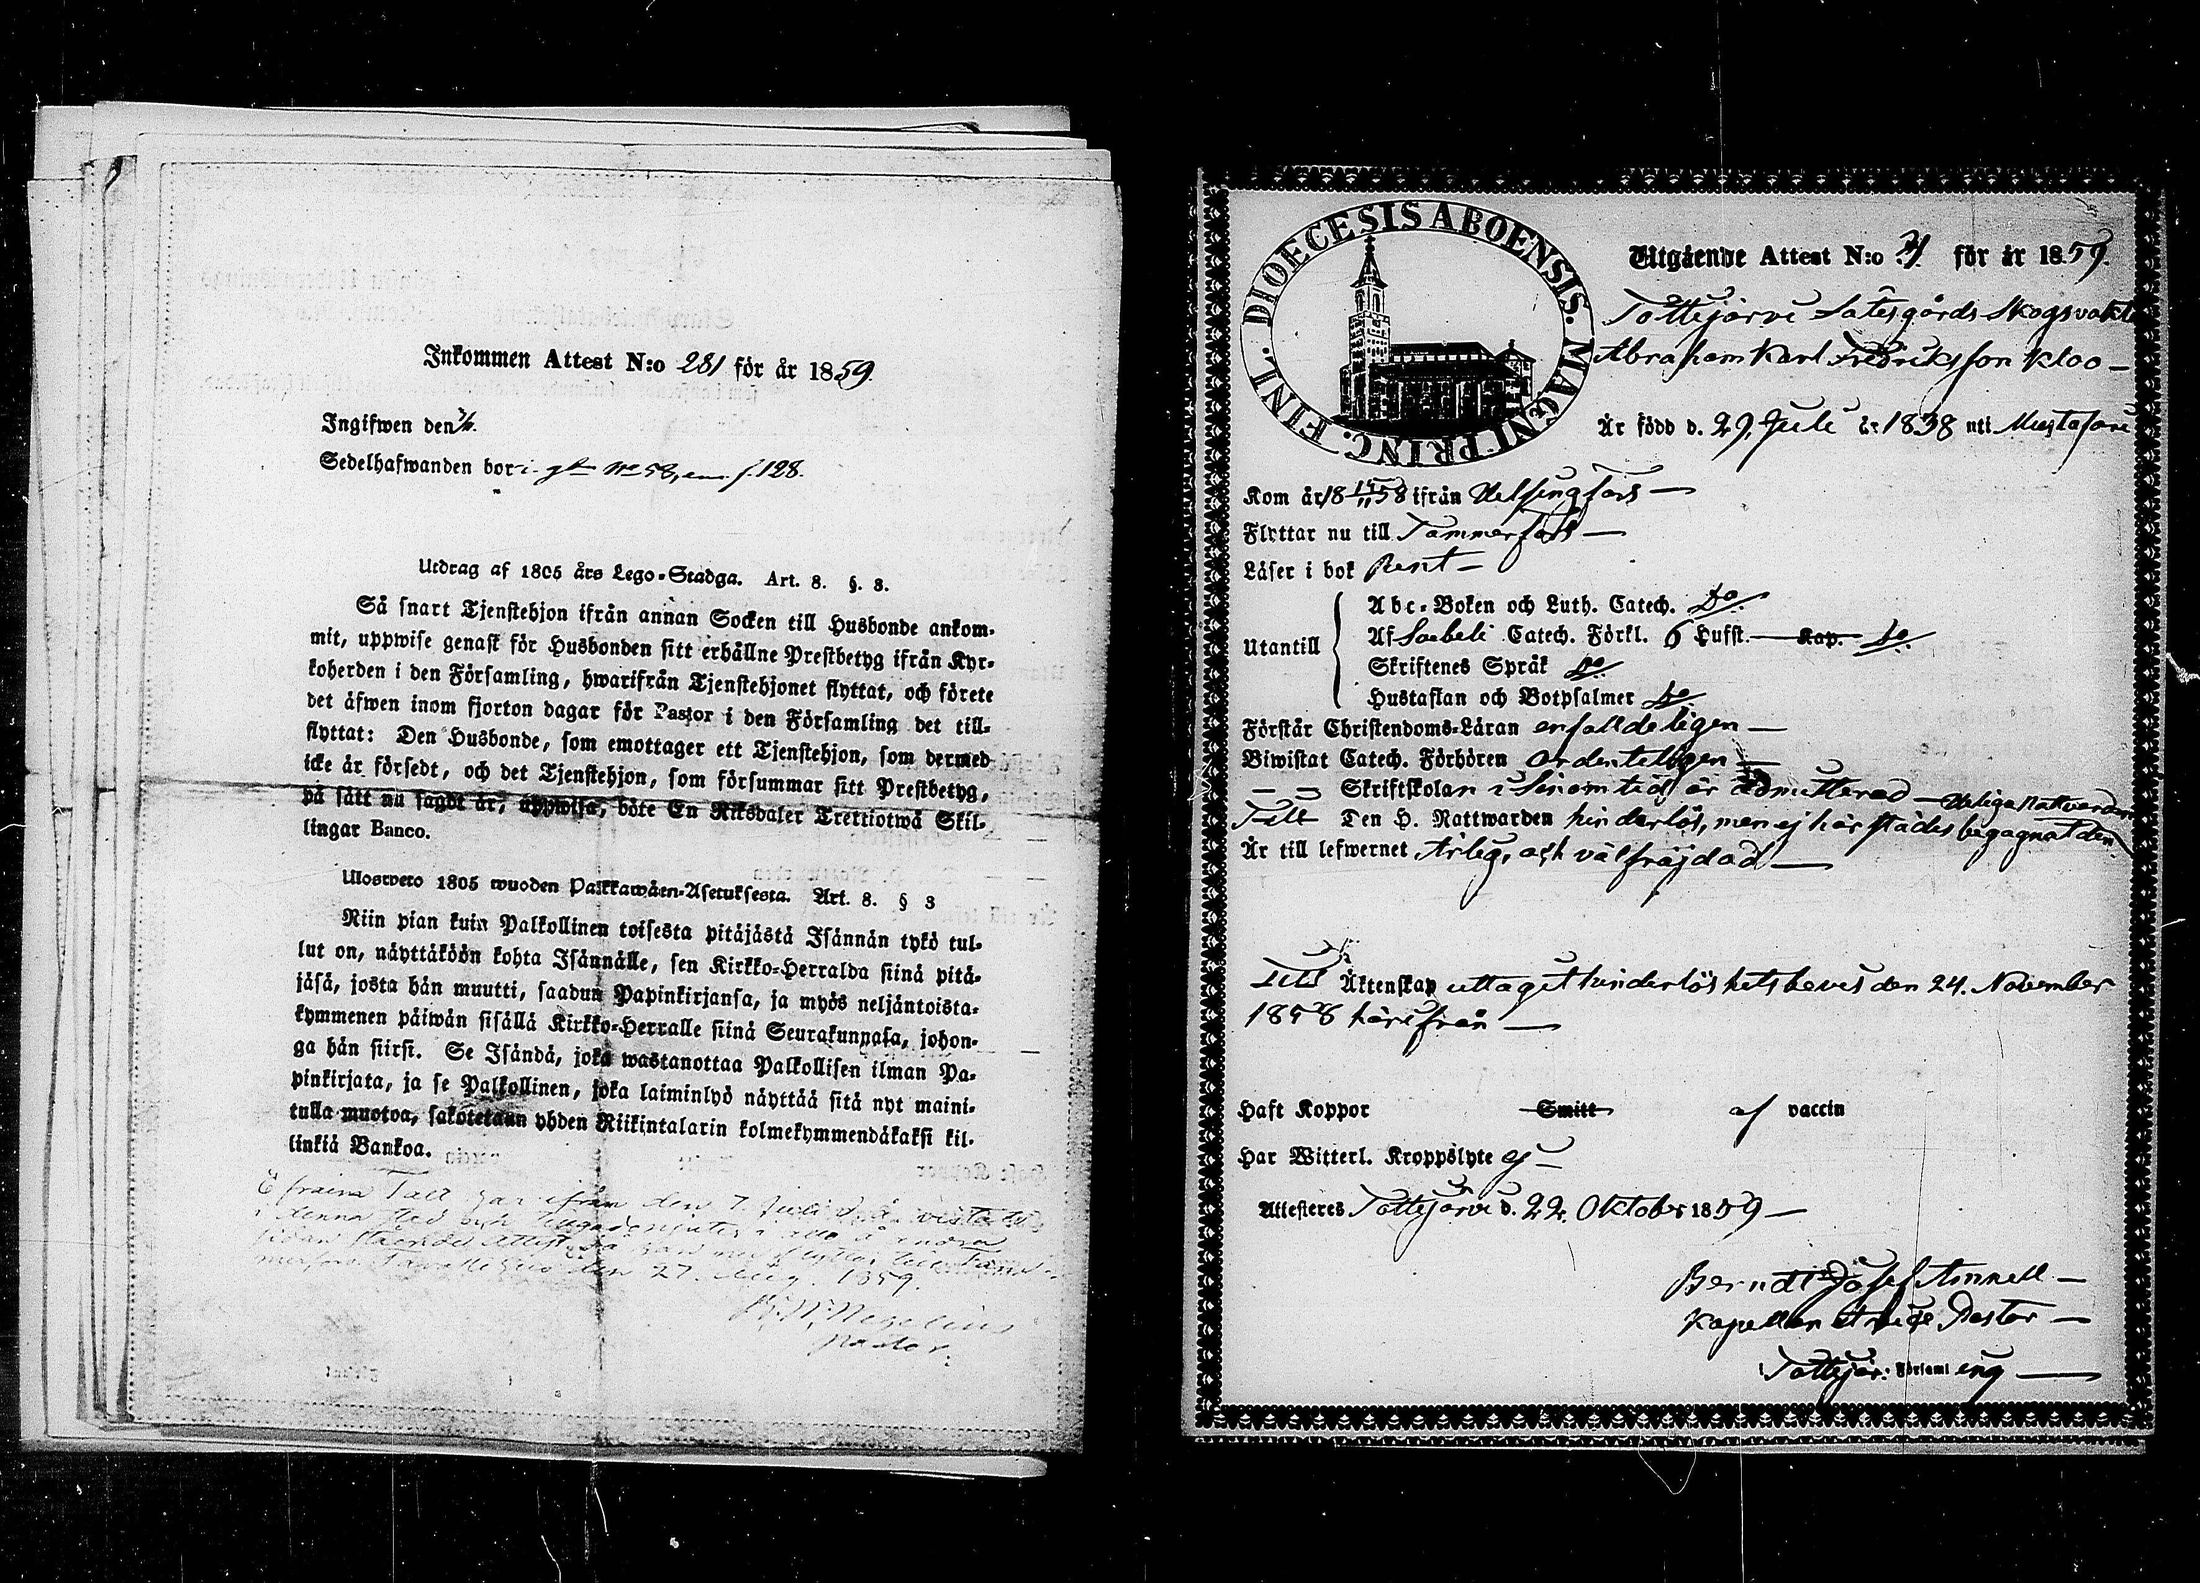 Inkommen Attest N:o 281 för år 1859.
Ingifwen den
Sedelhafwanden bor i gd No 58, f. 128.
Utdrag af 1805 års Lego-Stadga. Art. 8. §. 3.
Så snart Tjenstehjon ifrån annan Socken till Husbonde ankom-
mit, uppwise genast för Husbonden sitt erhållne Prestbetyg ifrån Kyr-
koherden i den Församling, hwarifrån Tjenstehjonet flyttat, och förete
det äfwen inom fjorton dagar för Pastor i den Församling det till-
flyttat: Den Husbonde, som emottager ett Tjenstehjon, som dermed
icke är försedt, och det Tjenstehjon, som försummar sitt Prestbetyg,
på sätt nu sagdt är, uppwisa, böte En Riksdaler Trettiotwå Skil-
lingar Banco.
Ulosweto 1805 wuoden Palkkawäen-Asetuksesta. Art. 8. § 3
Niin pian kuin Palkollinen toisesta pitäjästä Isännän tykö tul-
lut on, näyttäköön kohta Isännälle, sen Kirkko-Herralda siinä pitä-
jäsä, josta hän muutti, saadun Papinkirjansa, ja myös neljäntoista-
kymmenen päiwän sisällä Kirkko-Herralle siinä Seurakunnasa, johon-
ga hän siirsi. Se Isändä, joka wastanottaa Palkollisen ilman Pa-
pinkirjata, ja se Palkollinen, joka laiminlyö näyttää sitä nyt maini-
tulla muotoa, sakotetaan yhden Riikintalarin kolmekymmendäkaksi kil-
linkiä Bankoa.
Efraim Tall har ifrån den 7. Juli d. å. vistats
i denna stad och
sidan stående attest, då han nu flyttar till Tam-
merfors. Tavastehus den 27. Aug. 1859.
Pastor.
DIOECESIS ABOENSIS. MAGNI PRINC. FINL.
Utgående Attest N:o 31 för år 1859.
Tottijärvi Säteygårds Skogsvakt
Abraham Karl Fredriksson Kloo —
Är född d. 29. Juli år 1838 uti Mustasaari
Kom år 18 15/11 58 ifrån Helsingfors —
Flyttar nu till Tammerfors —
Läser i bok Rent —
Utantill
Abc-Boken och Luth. Catech. do
Af Svebeli Catech. Förkl. 6 Hufst. — Kap. do
Skriftenes Språk do
Hustaflan och Botpsalmer do
Förstår Christendoms-Läran enfalldeligen —
Biwistat Catech. Förhören Ordenteligen —
— — Skriftskolan i Sinom tid är admitterad —
Till Den H. Nattwarden hinderlös, men ej härstädes begagnat den Heliga Nattvarden
Är till lefwernet Ärlig, och välfräjdad —
Till Äktenskap uttagit hinderlöshetsbevis den 24. November
1858 härifrån —
Haft Koppor Smitt af vaccin
Har Witterl. Kroppslyte ej —
Attesteres Tottijärvi d. 22. Oktober 1859 —
Berndt Josef Amnell —
Kapellan Vice Pastor —
Tottijär: Församl ing —